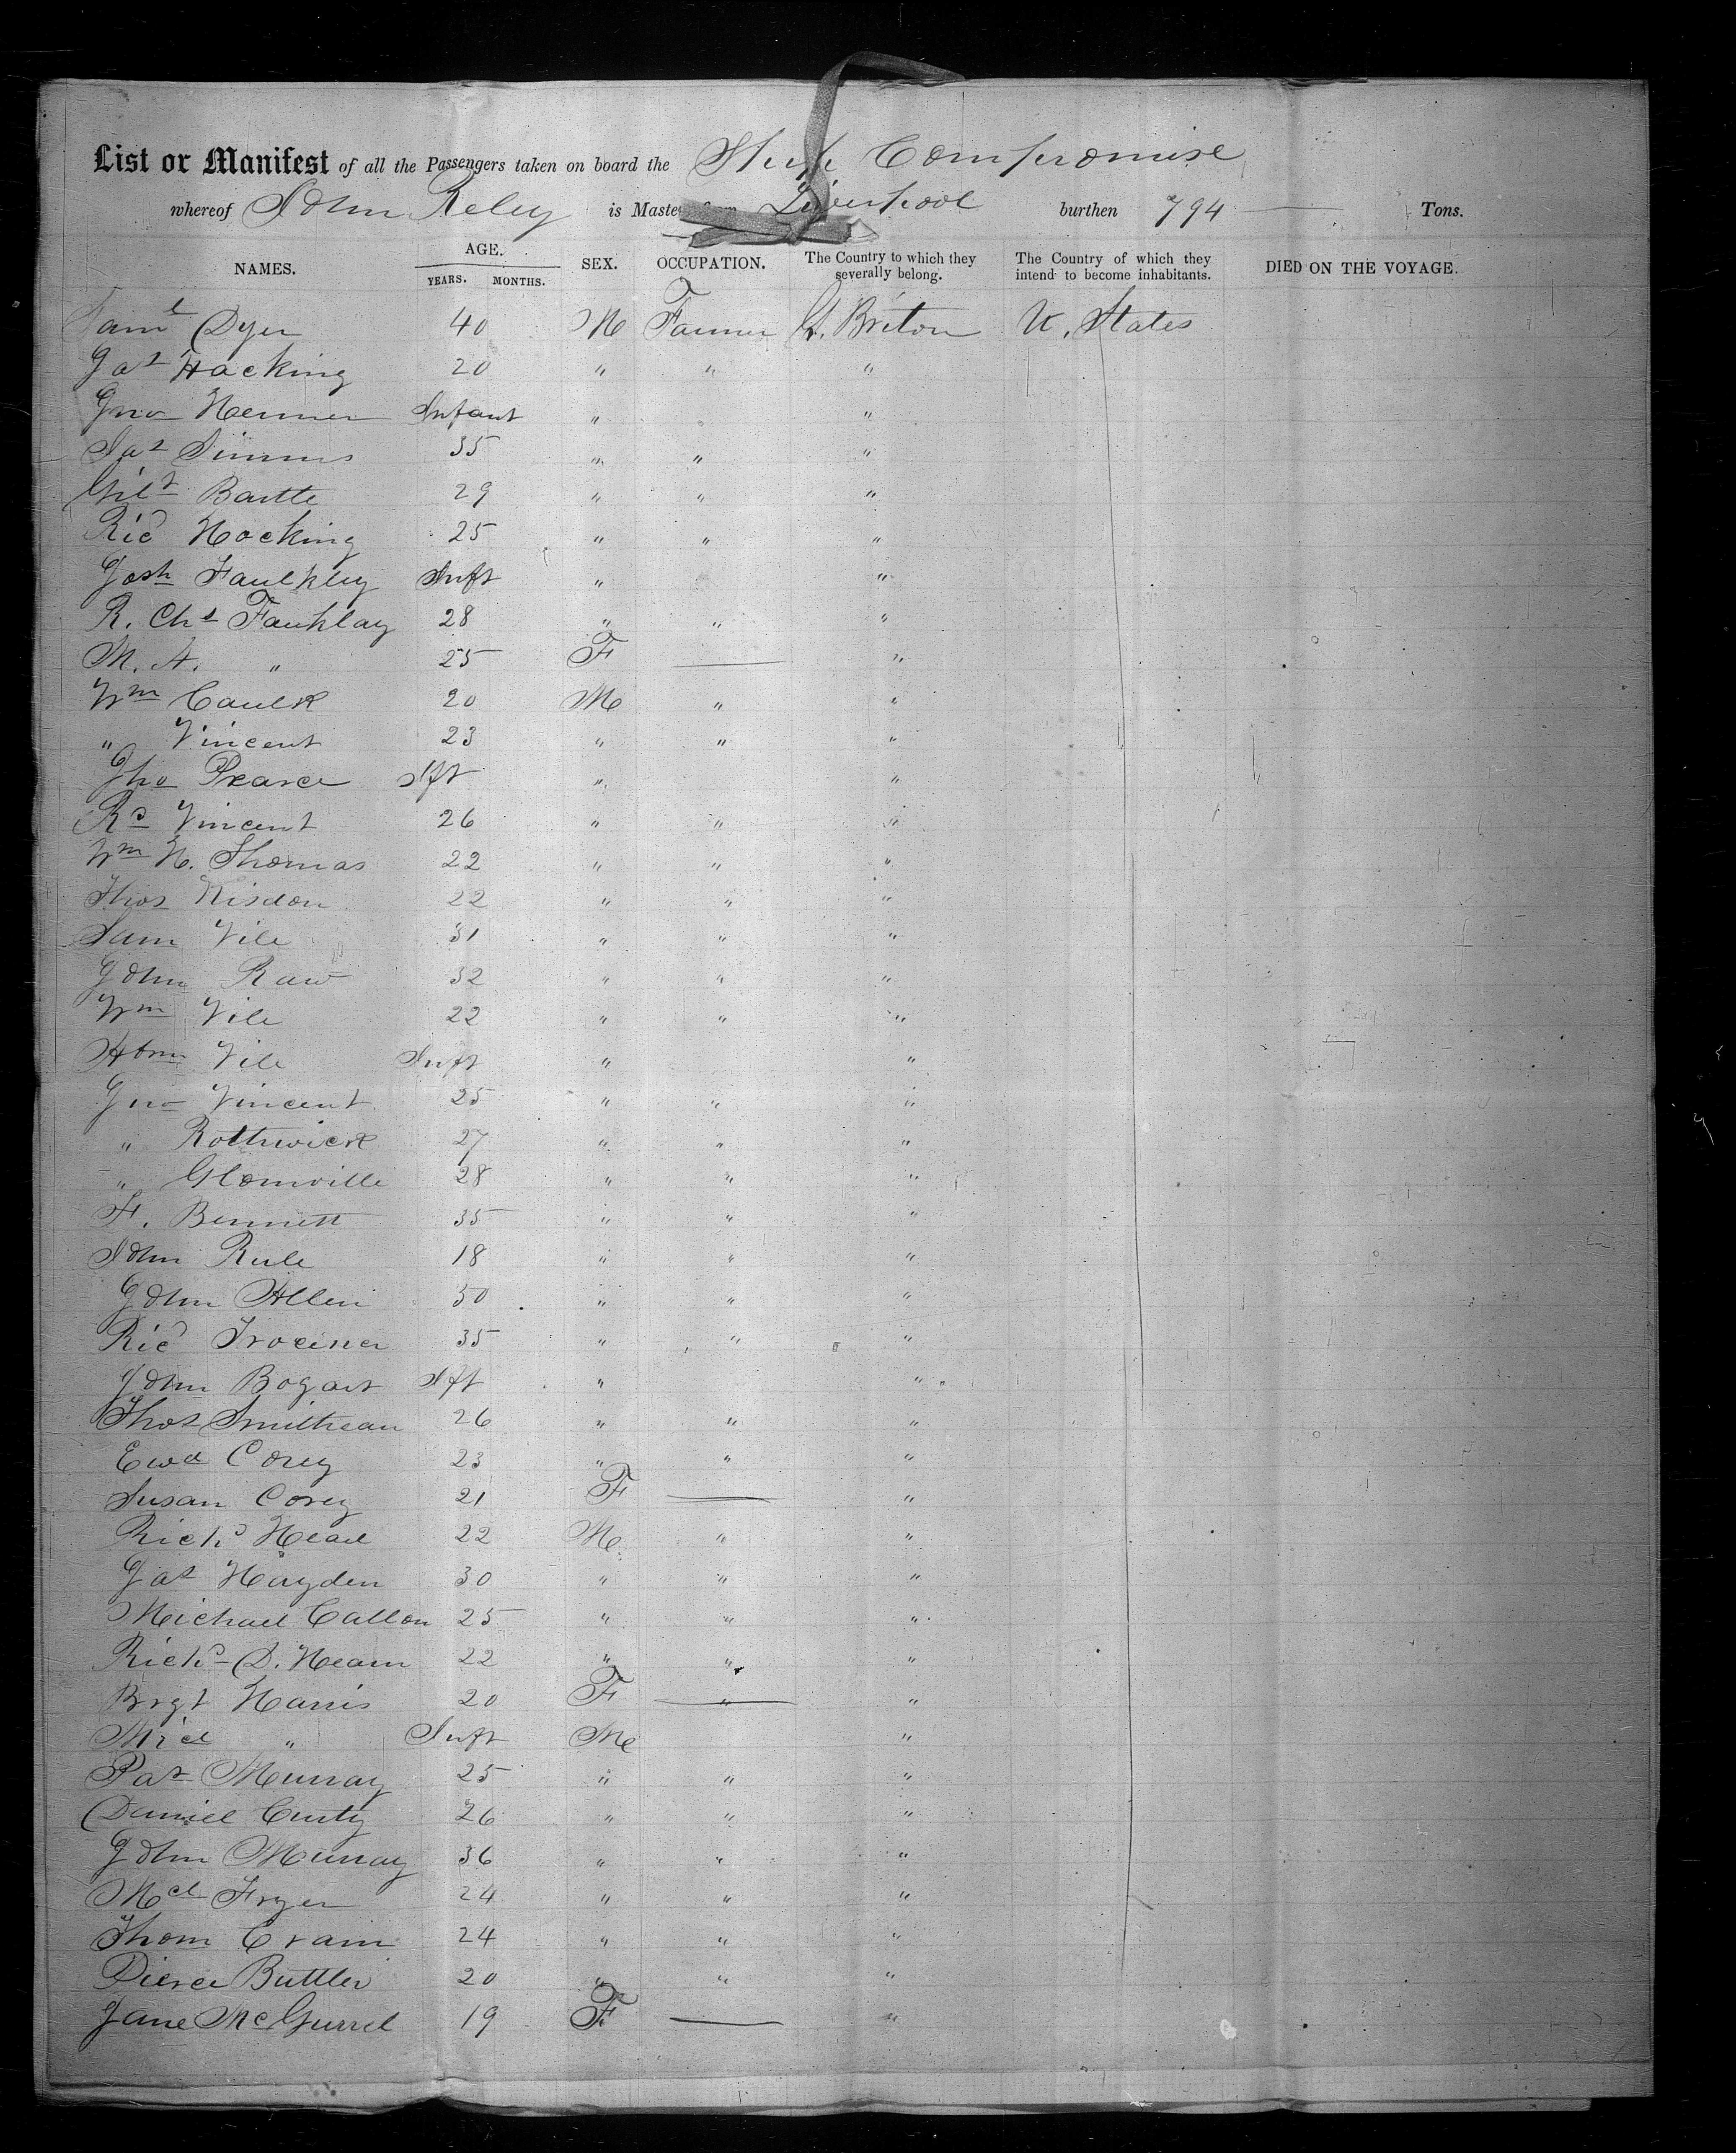 List or Manifest of all the Passengers taken on board the Ship Compromise
whereof John Reley is Master from Liverpool burthen 794 Tons.
NAMES. AGE. YEARS. MONTHS. SEX. OCCUPATION. The Country to which they severally belong. The Country of which they intend to become inhabitants. DIED ON THE VOYAGE.
Saml Dyer 40 M Farmer Gt. Briton U. States
Jas Hacking 20 " " "
Jno Henner Infant " "
Jas Simms 35 " " "
Gilt Bartte 29 " " "
Ricd Hocking 25 " " "
Josh Faulkley Inft " "
R. Chs Fauhlay 28 " " "
M. A. " 25 F — "
Wm Caulk 20 M " "
" Vincent 23 " " "
Jho Pearce Ift " "
Rd Vincent 26 " " "
Wm H. Thomas 22 " " "
Thos Risdon 22 " " "
Sam Vile 31 " " "
John Raw 32 " " "
Wm Vile 22 " " "
Abm Vile Inft " "
Jno Vincent 25 " " "
" Rothwick 27 " " "
" Glomville 28 " " "
F. Bennett 35 " " "
John Rule 18 " " "
John Allen 50 " " "
Ricd Trociner 35 " " "
John Bogart Ift " "
Thos Smitheau 26 " " "
Ewd Corey 23 " " "
Susan Corey 21 F — "
Richd Head 22 M " "
Jas Hayden 30 " " "
Michael Callon 25 " " "
Richd D. Hearn 22 " " "
Brgt Harris 20 F " "
Micl " Inft M "
Pat Murray 25 " " "
Daniel Curty 26 " " "
John Murray 36 " " "
Mcl Fryer 24 " " "
Thom Crain 24 " " "
Pierce Buttler 20 " " "
Jane McGurrel 19 F — "